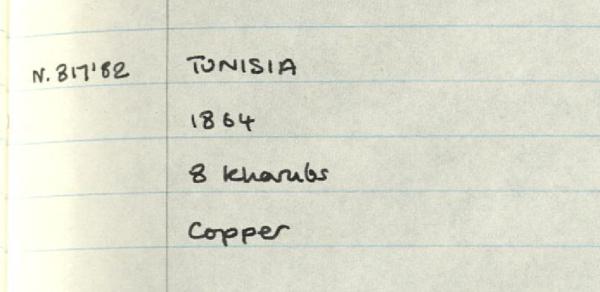 N. 817'82 TUNISIA
1864
8 kharubs
Copper